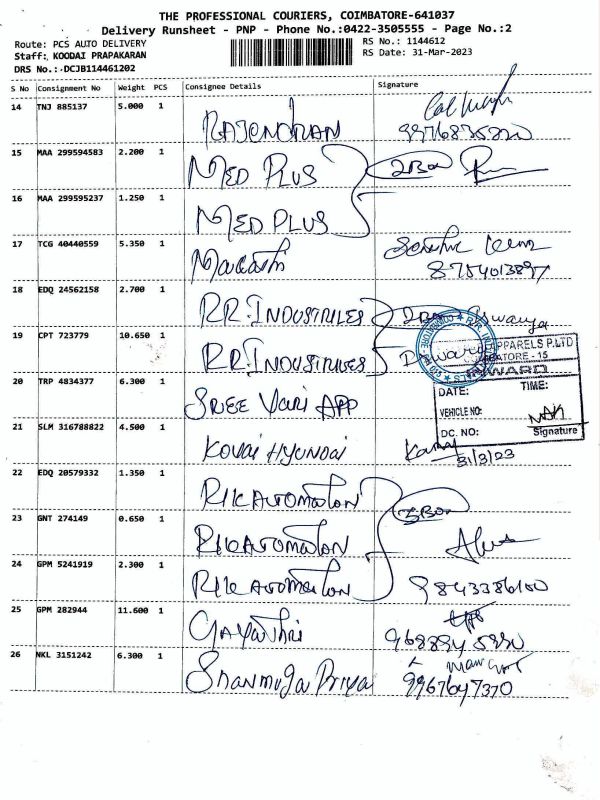 THE PROFESSIONAL COURIERS, COIMBATORE-641037
Delivery Runsheet - PNP - Phone No.:0422-3505555 - Page No.:2
Route: PCS AUTO DELIVERY RS No.: 1144612
Staff: KOODAI PRAPAKARAN RS Date: 31-Mar-2023
DRS No.:-DCJB114461202
S No Consignment No Weight PCS Consignee Details Signature
14 TNJ 885137 5.000 1 RAJENDRAN
15 MAA 299594583 2.200 1 MED PLUS
16 MAA 299595237 1.250 1 MED PLUS
17 TCG 40440559 5.350 1
18 EDQ 24562158 2.700 1 RR.INDUSTRIES
19 CPT 723779 10.650 1 RR.INDUSTRIES
APPARELS P.LTD
COIMBATORE - 15
INWARD
20 TRP 4834377 6.300 1 SREE VARI APP
DATE: TIME:
VEHICLE NO:
DC. NO: Signature
21 SLM 316788822 4.500 1 KOVAI HYUNDAI
31/3/23
22 EDQ 20579332 1.350 1 RIKAUTOMATION
23 GNT 274149 0.650 1 RIKAUTOMATION
24 GPM 5241919 2.300 1 RIKAUTOMATION
9843386100
25 GPM 282944 11.600 1 GAYATHRI
26 NKL 3151242 6.300 1 SHANMUGA PRIYA
9967647370